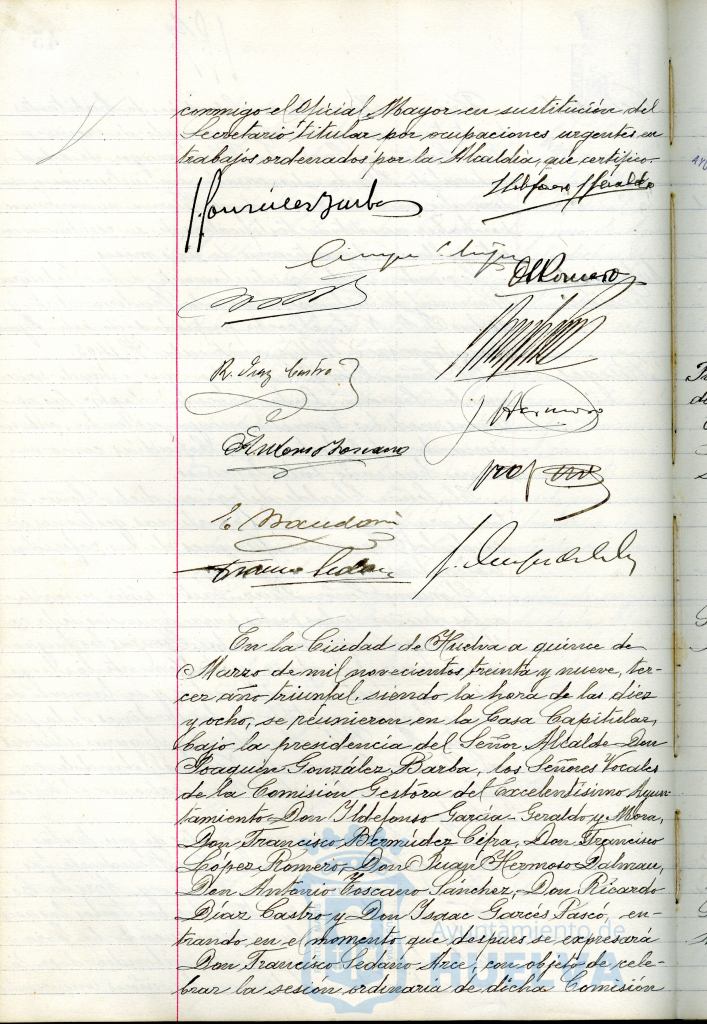 conmigo el Oficial Mayor en sustitución del
Secretario titular por ocupaciones urgentes en
trabajos ordenados por la Alcaldía, que certifico.
J. González Barba
Ildefonso Geraldo
Romero
R. Díaz Castro
J. Hermoso
Antonio Toscano
Franco Sedano
En la Ciudad de Huelva a quince de
Marzo de mil novecientos treinta y nueve, ter-
cer año triunfal, siendo la hora de las diez
y ocho, se reunieron en la Casa Capitular,
bajo la presidencia del Señor Alcalde Don
Joaquín González Barba, los Señores Vocales
de la Comisión Gestora del Excelentísimo Ayun-
tamiento Don Ildefonso García-Geraldo y Mora,
Don Francisco Bermúdez Cifra, Don Francisco
López Romero, Don Juan Hermoso Dalmau,
Don Antonio Toscano Sánchez, Don Ricardo
Díaz Castro y Don Isaac Garcés Pascó, en-
trando en el momento que despues se expresará
Don Francisco Sedano Arce, con objeto de cele-
brar la sesión ordinaria de dicha Comisión
Ayuntamiento de
HUELVA